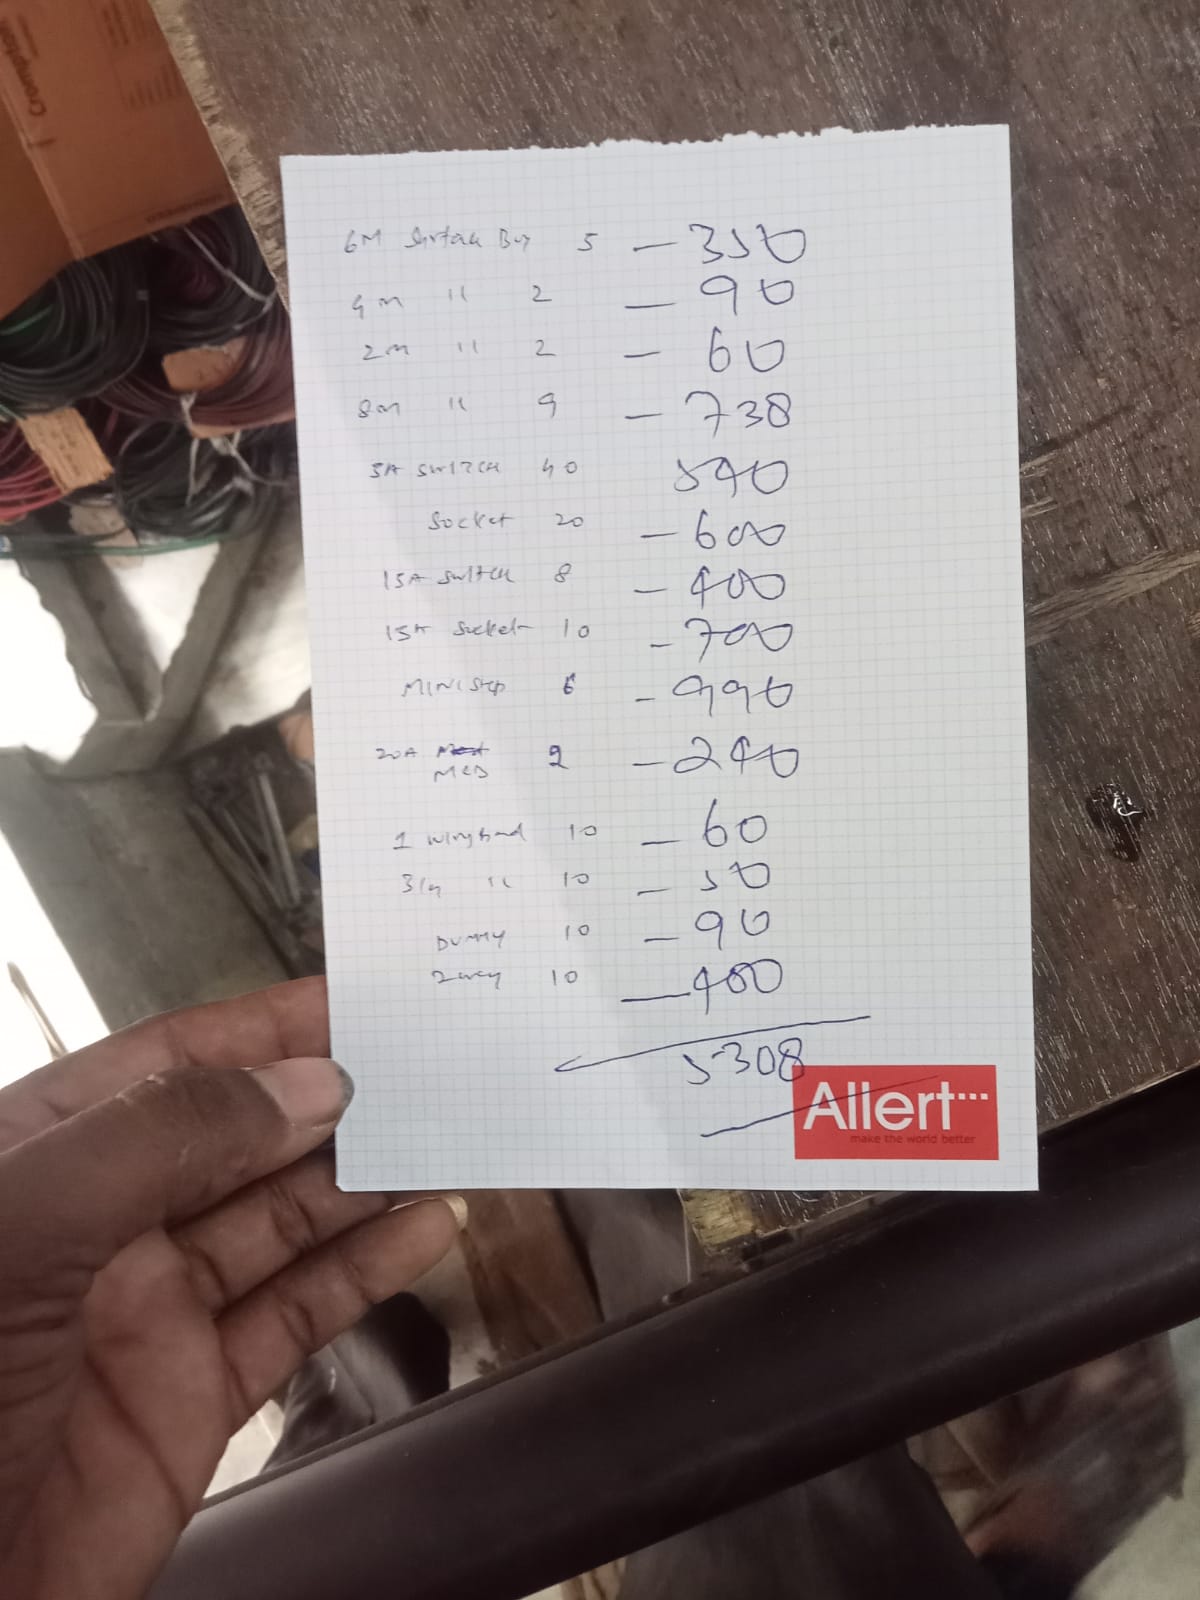 6M Surface Box 5 — 350
4m 〃 2 — 90
2m 〃 2 — 60
8m 〃 9 — 738
5A SWITCH 40 540
Socket 20 — 600
15A Switch 8 — 400
15A Socket 10 — 700
MINI Step 6 — 990
20A MCB 2 — 240
1 10 — 60
3/4 〃 10 — 50
DUMMY 10 — 90
2way 10 — 400
5308
Allert...
make the world better